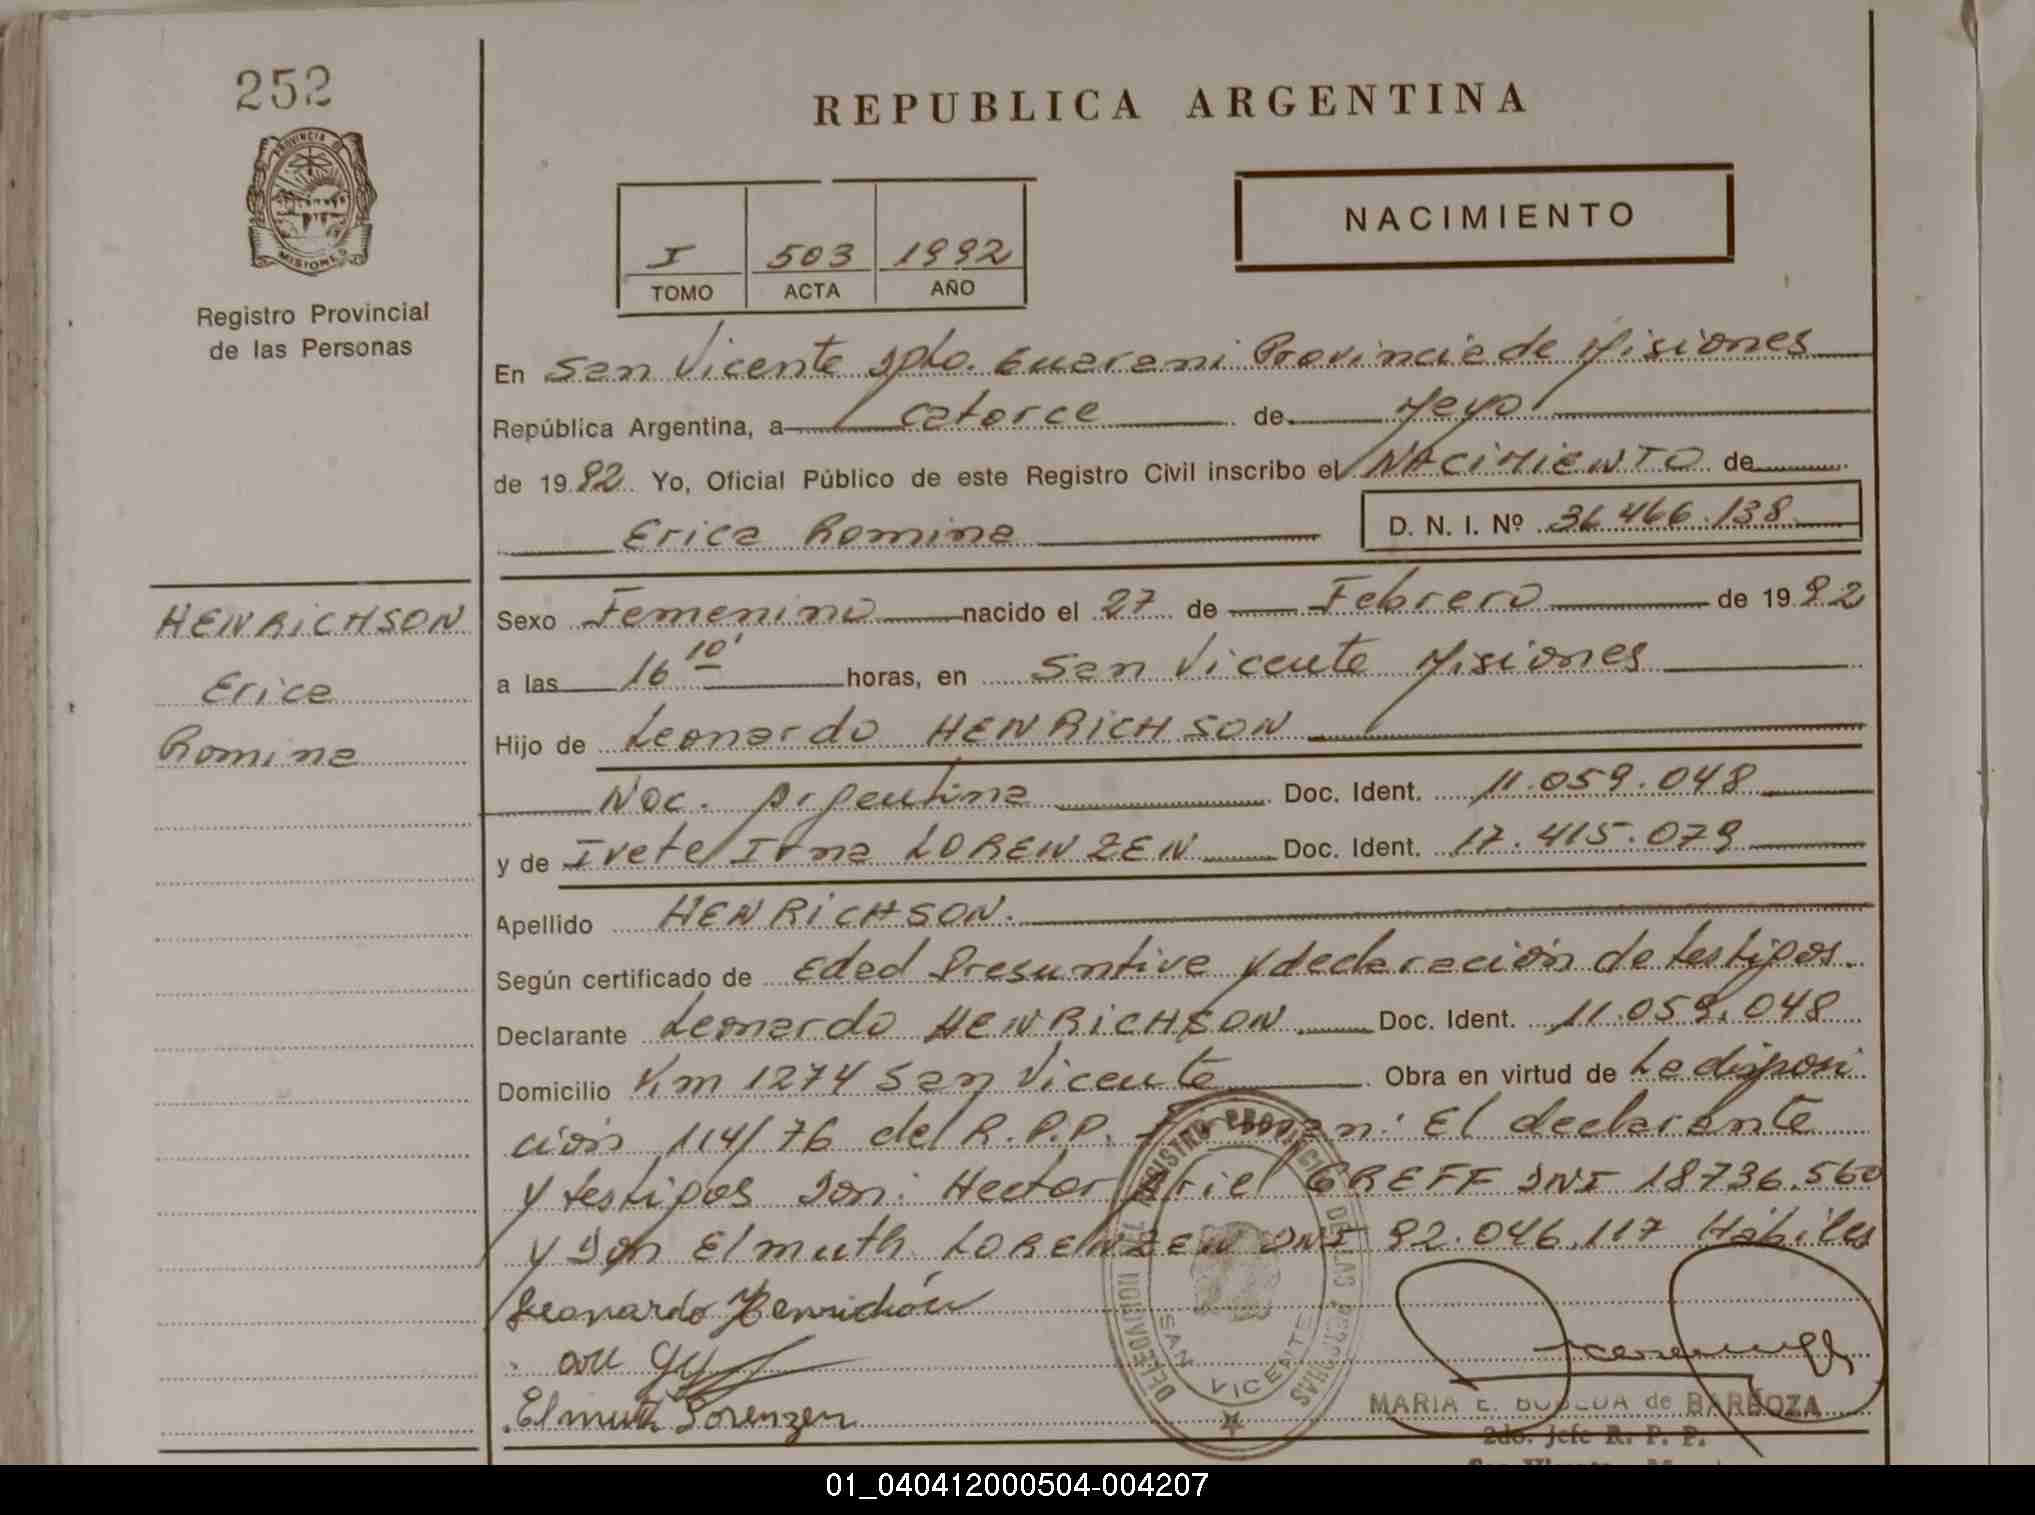 252
PROVINCIA DE
MISIONES
Registro Provincial
de las Personas
REPUBLICA ARGENTINA
NACIMIENTO
I 503 1992
TOMO ACTA AÑO
En San Vicente Dpto. Guarani Provincia de Misiones
República Argentina, a catorce de Mayo
de 1992. Yo, Oficial Público de este Registro Civil inscribo el NACIMIENTO de
Erica Romina D. N. I. Nº 36.466.138
HENRICHSON
Erica
Romina
Sexo Femenino nacido el 27 de Febrero de 1992
a las 16 10' horas, en San Vicente Misiones
Hijo de Leonardo HENRICHSON
Nac. Argentina Doc. Ident. 11.059.048
y de Ivete Irna LORENZEN Doc. Ident. 17.415.079
Apellido HENRICHSON.
Según certificado de Edad Presuntiva y declaración de testigos.
Declarante Leonardo HENRICHSON Doc. Ident. 11.059.048
Domicilio Km 1274 San Vicente Obra en virtud de La disposi
ción 114/76 del R.P.P. Firman: El declarante
y testigos Don: Hector Ariel GREFF DNI 18736.560
y Don Elmuth LORENZEN DNI 92.046.117 Hábiles
Leonardo Henrichson
Elmuth Lorenzen
REGISTRO PROVINCIAL DE LAS PERSONAS
DELEGACION
SAN VICENTE
MARIA E. de BARBOZA
2do. Jefe R. P. P.
01_040412000504-004207